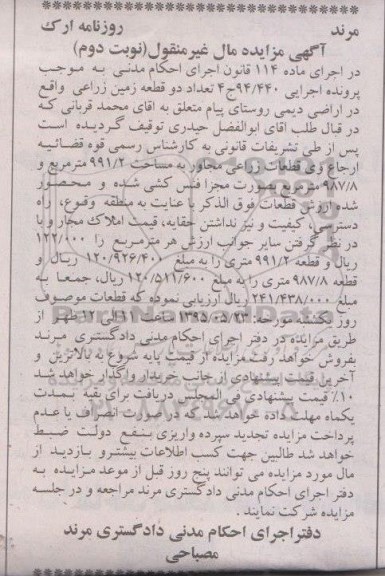 مرند روزنامه ارک
آگهی مزایده مال غیرمنقول(نوبت دوم)
در اجرای ماده ۱۱۴ قانون اجرای احکام مدنی به موجب
پرونده اجرایی ۹۴/۴۴۰ج۴ تعداد دو قطعه زمین زراعی واقع
در اراضی دیمی روستای پیام متعلق به اقای محمد قربانی که
در قبال طلب اقای ابوالفضل حیدری توقیف گردیده است
پس از طی تشریفات قانونی به کارشناس رسمی قوه قضائیه
ارجاع وی قطعات زراعی مجاور به مساحت ۹۹۱/۲ مترمربع و
۹۸۷/۸ مترمربع بصورت مجزا فنس کشی شده و محصور
شده ارزش قطعات فوق الذکر با عنایت به منطقه وقوع، راه
دسترسی، کیفیت و نیز نداشتن حقابه، قیمت املاک مجاور و با
در نظر گرفتن سایر جوانب ارزش هر مترمربع را ۱۲۲/۰۰۰
ریال و قطعه ۹۹۱/۲ متری را به مبلغ ۱۲۰/۹۲۶/۴۰۰ ریال و
قطعه ۹۸۷/۸ متری را به مبلغ ۱۲۰/۵۱۱/۶۰۰ ریال، جمعا به
مبلغ ۲۴۱/۴۳۸/۰۰۰ ریال ارزیابی نموده که قطعات موصوف
روز یکشنبه مورخه: ۱۳۹۵/۰۵/۲۳ ساعت ۱۱ الی ۱۲ ظهر از
طریق مزایده در دفتر اجرای احکام مدنی دادگستری مرند
بفروش خواهد رفت مزایده از قیمت پایه شروع به بالاترین و
آخرین قیمت پیشنهادی از جانب خریدار واگذار خواهد شد
۱۰٪ قیمت پیشنهادی فی المجلس دریافت برای بقیه بمدت
یکماه مهلت داده خواهد شد که در صورت انصراف یا عدم
پرداخت مزایده تجدید سپرده واریزی بنفع دولت ضبط
خواهد شد طالبین جهت کسب اطلاعات بیشتر و بازدید از
مال مورد مزایده می توانند پنج روز قبل از موعد مزایده به
دفتر اجرای احکام مدنی دادگستری مرند مراجعه و در جلسه
مزایده شرکت نمایند.
دفتر اجرای احکام مدنی دادگستری مرند
مصباحی